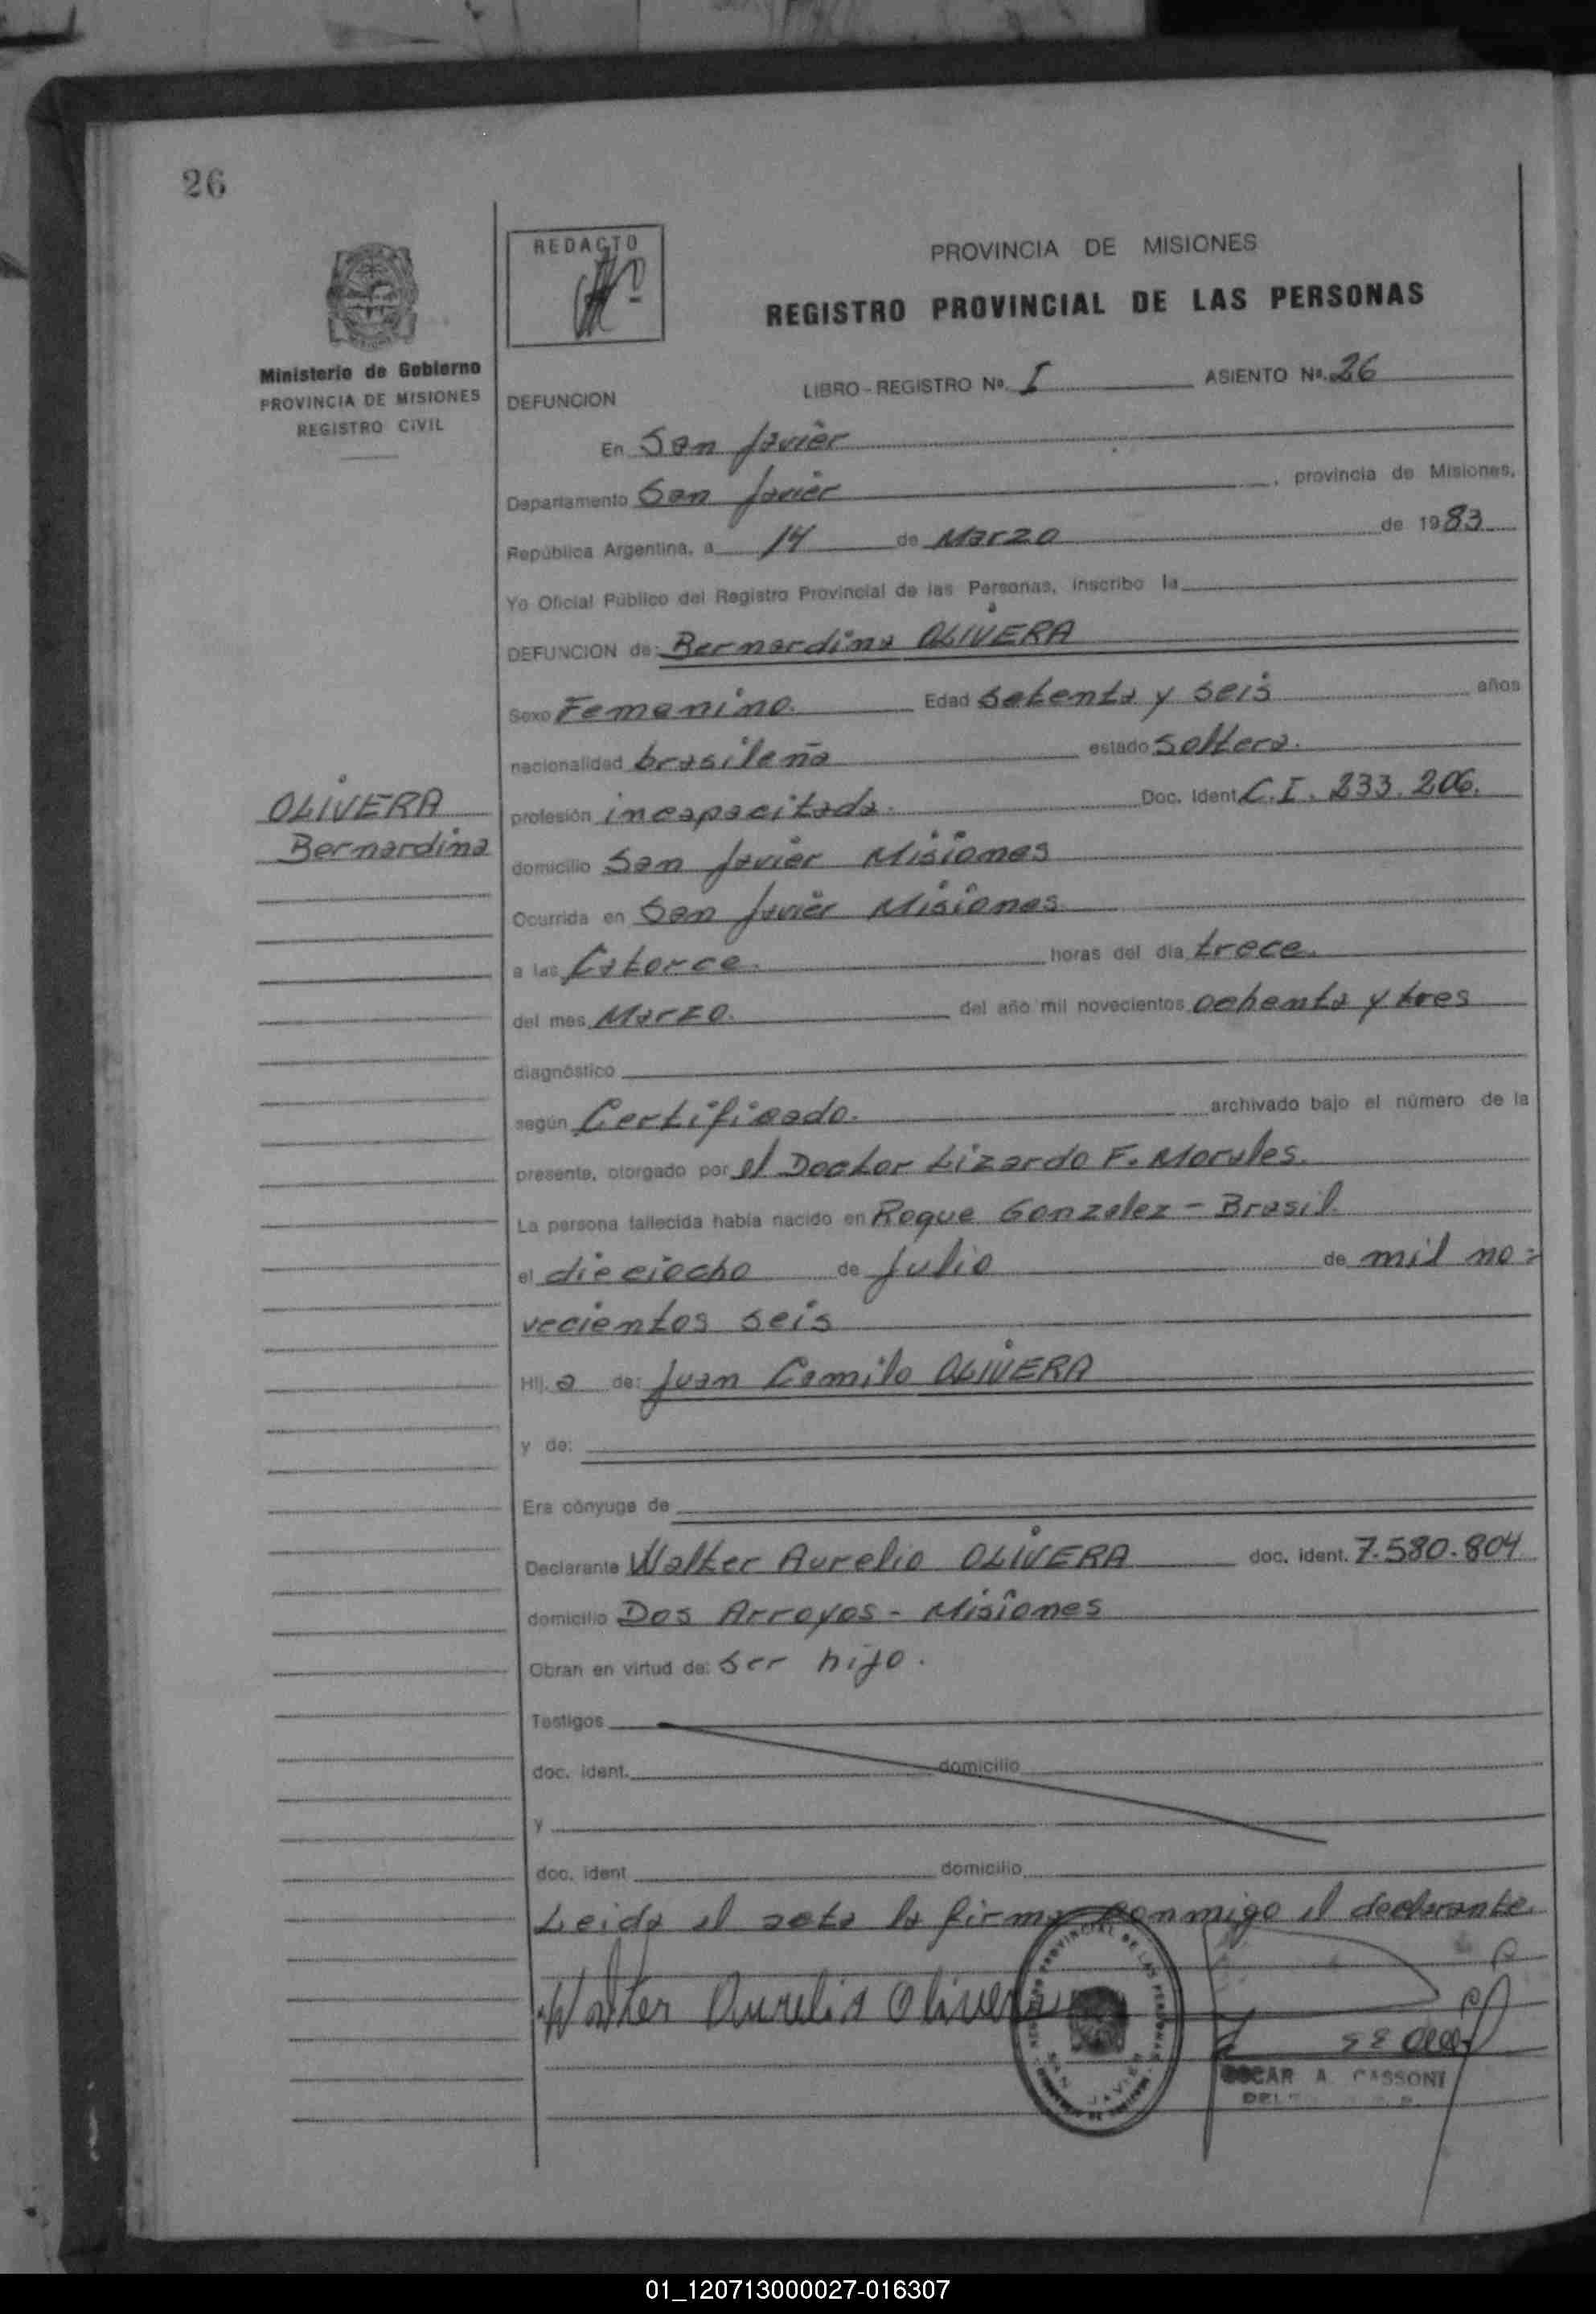 26
REDACTO
PROVINCIA DE MISIONES
REGISTRO PROVINCIAL DE LAS PERSONAS
Ministerio de Gobierno
PROVINCIA DE MISIONES
REGISTRO CIVIL
LIBRO - REGISTRO Nº. I ASIENTO Nº. 26
DEFUNCION
En San Javier
Departamento San Javier , provincia de Misiones,
República Argentina, a 14 de Marzo de 1983
Yo Oficial Público del Registro Provincial de las Personas, inscribo la
DEFUNCION de: Bernardina OLIVERA
Sexo Femenino. Edad Setenta y seis años
nacionalidad brasileña estado soltera.
OLIVERA
Bernardina
profesión incapacitada. Doc. Ident. C.I. 233.206.
domicilio San Javier Misiones
Ocurrida en San Javier Misiones
a las Catorce. horas del día trece.
del mes Marzo. del año mil novecientos ochenta y tres
diagnóstico
según Certificado. archivado bajo el número de la
presente, otorgado por el Doctor Lizardo F. Morales.
La persona fallecida había nacido en Roque Gonzalez - Brasil.
el dieciocho de Julio de mil no=
vecientos seis
Hij a de: Juan Camilo OLIVERA
y de:
Era cónyuge de
Declarante Walter Aurelio OLIVERA doc. ident. 7.580.804
domicilio Dos Arroyos - Misiones
Obran en virtud de: ser hijo.
Testigos
doc. ident. domicilio
y
doc. ident domicilio
Leida el acta la firma conmigo el declarante.
Walter Aurelio Olivera
REGISTRO PROVINCIAL DE LAS PERSONAS
SAN JAVIER
OSCAR A. CASSONI
01_120713000027-016307